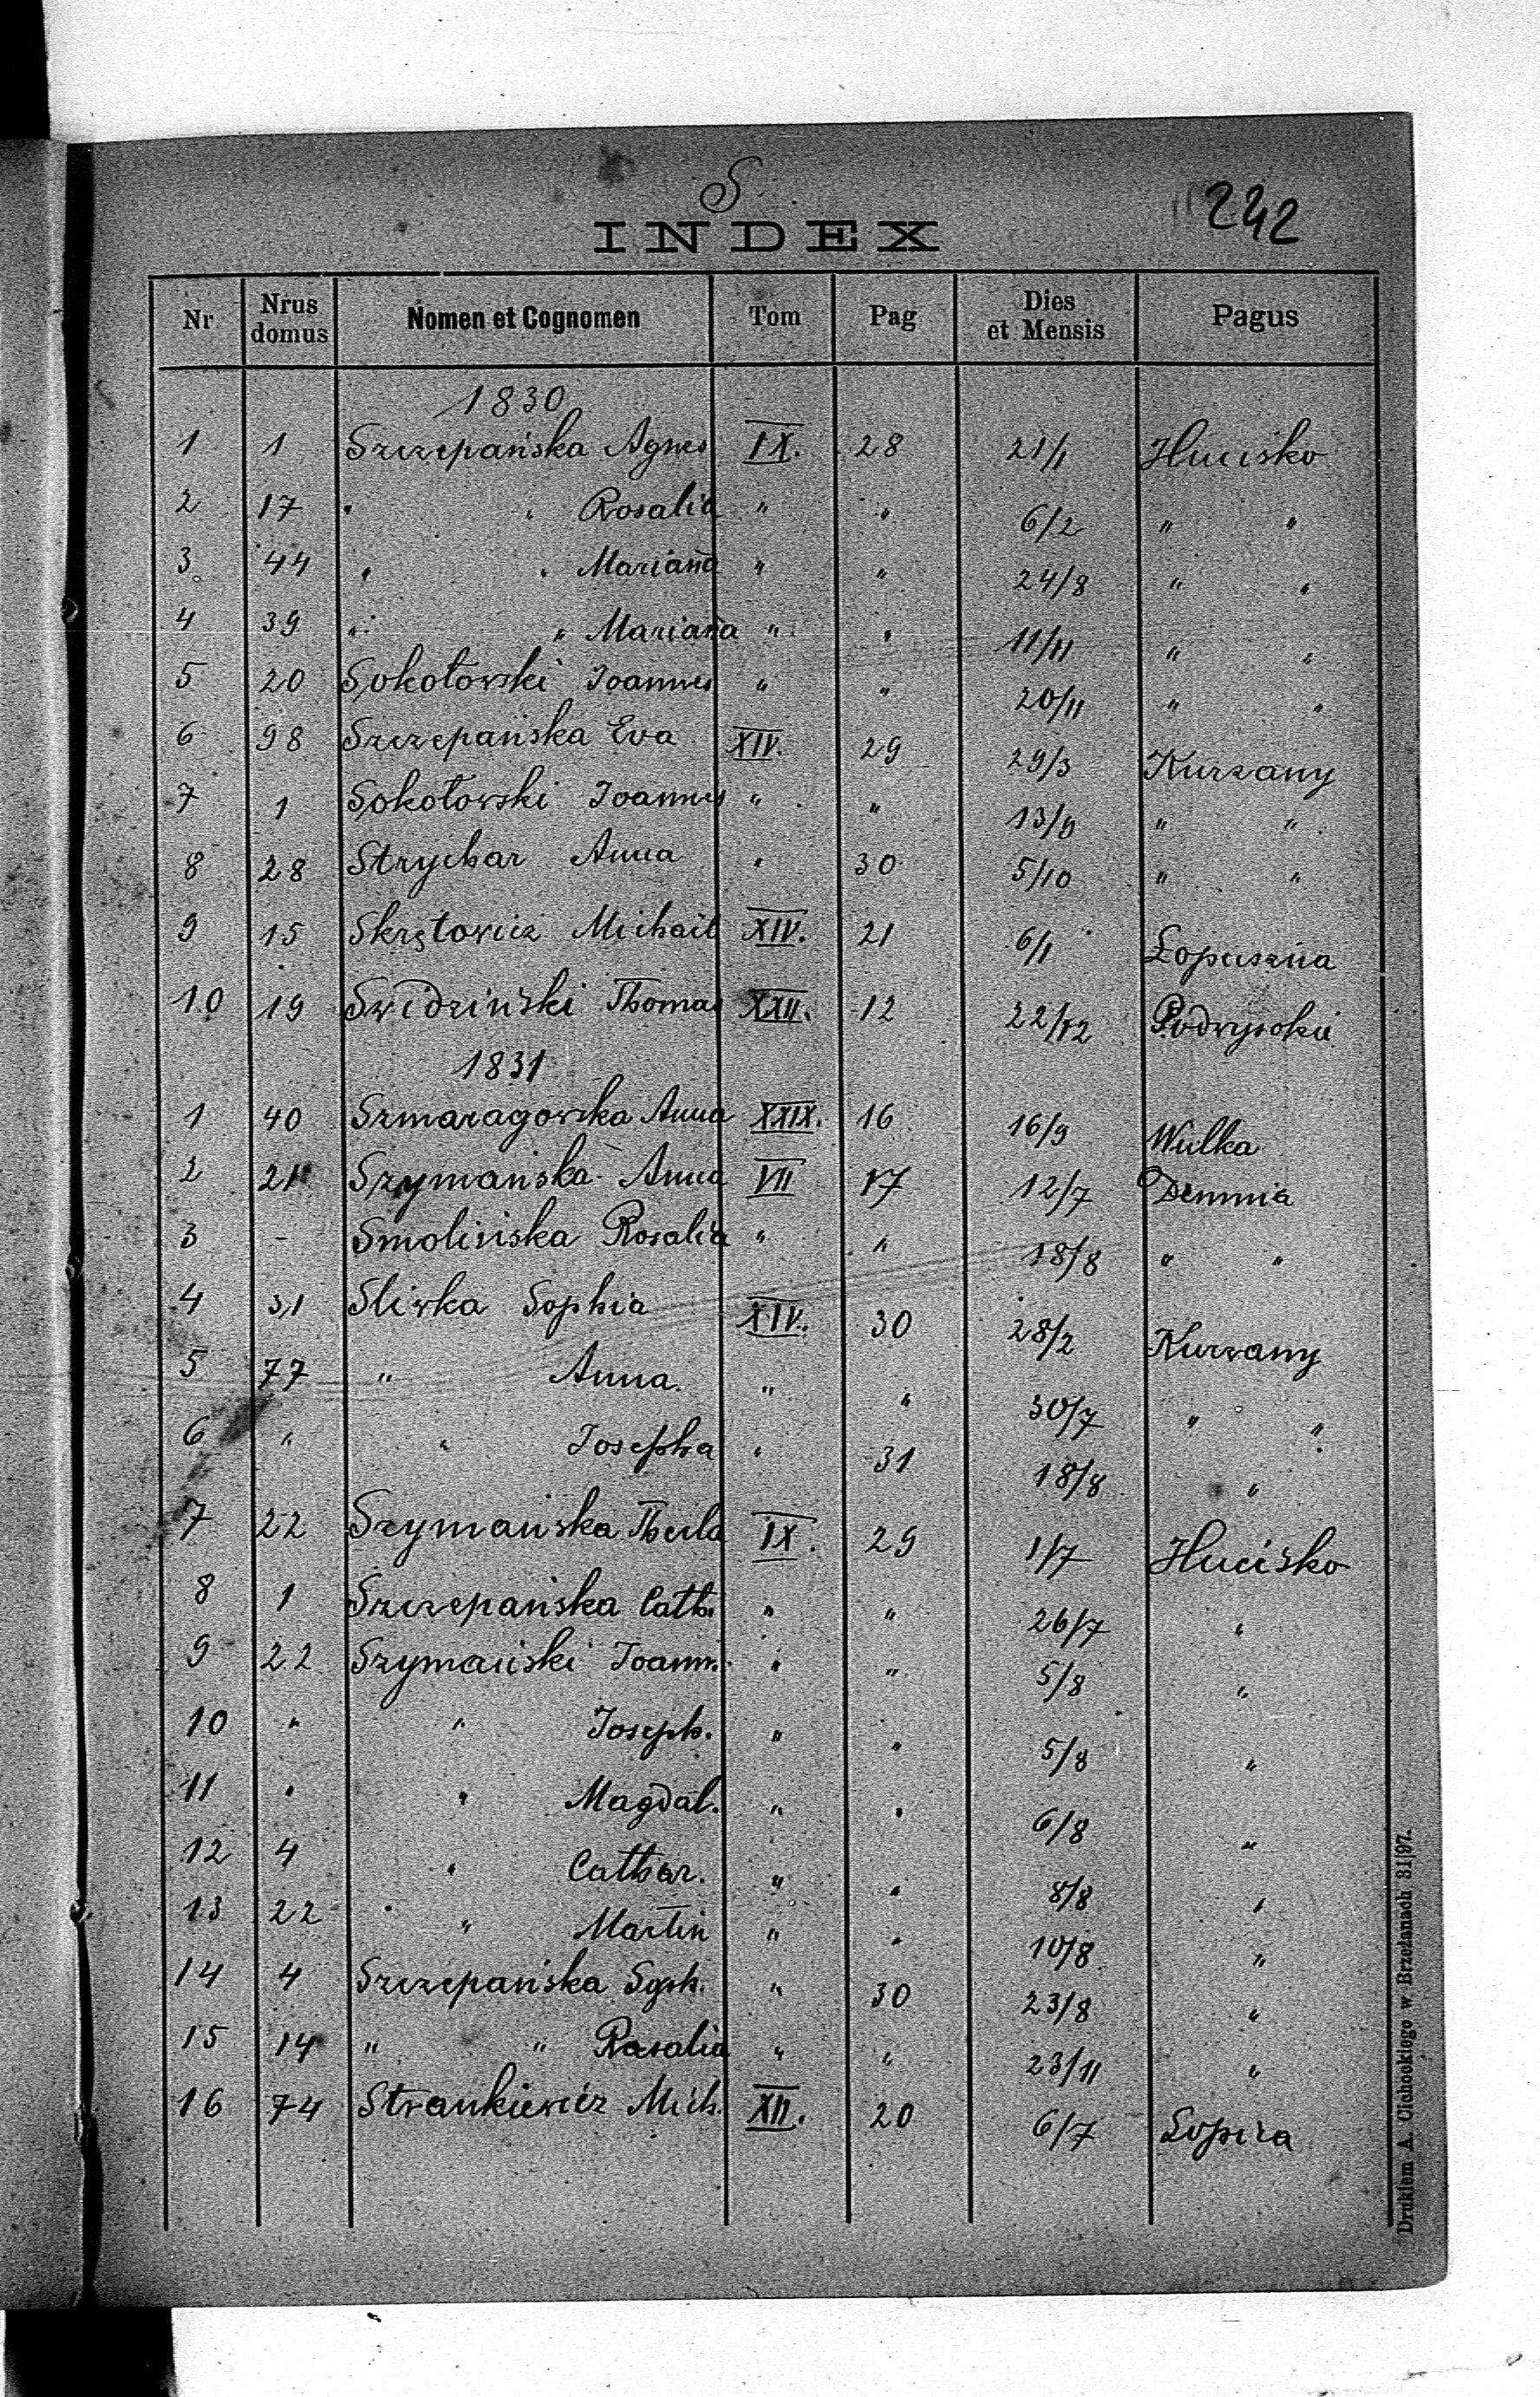 S
242
INDEX
Nr | Nrus domus | Nomen et Cognomen | Tom | Pag | Dies et Mensis | Pagus
1830
1 | 1 | Szczepańska Agnes | IX. | 28 | 21/1 | Hucisko
2 | 17 | " " Rosalia | " | " | 6/2 | " "
3 | 44 | " " Marianna | " | " | 24/8 | " "
4 | 39 | " " Marianna | " | " | 11/11 | " "
5 | 20 | Sokołowski Joannes | " | " | 20/11 | " "
6 | 98 | Szczepańska Eva | XIV. | 29 | 29/3 | Kurzany
7 | 1 | Sokołowski Joannes | " | " | 13/9 | " "
8 | 28 | Strychar Anna | " | 30 | 5/10 | " "
9 | 15 | Skrętowicz Michail | XIV. | 21 | 6/1 | Łopuszna
10 | 19 | Swidziński Thomas | XXII. | 12 | 22/12 | Podwysokie
1831
1 | 40 | Szmaragowska Anna | XXIX. | 16 | 16/9 | Wulka
2 | 21 | Szymańska Anna | VII | 17 | 12/7 | Demnia
3 | - | Smolińska Rosalia | " | " | 18/8 | " "
4 | 31 | Sliwka Sophia | XIV. | 30 | 28/2 | Kurzany
5 | 77 | " Anna | " | " | 30/7 | " "
6 | " | " Josepha | " | 31 | 18/8 | "
7 | 22 | Szymańska Thecla | IX. | 29 | 1/7 | Hucisko
8 | 1 | Szczepańska Cath. | " | " | 26/7 | "
9 | 22 | Szymański Joann. | " | " | 5/8 | "
10 | " | " Joseph. | " | " | 5/8 | "
11 | " | " Magdal. | " | " | 6/8 | "
12 | 4 | " Cathar. | " | " | 8/8 | "
13 | 22 | " Martin | " | " | 10/8 | "
14 | 4 | Szczepańska Soph. | " | 30 | 23/8 | "
15 | 14 | " " Rosalia | " | " | 23/11 | "
16 | 74 | Strankiewicz Mich. | XII. | 20 | 6/7 |
Drukiem A. Cichockiego w Brzeżanach 31|97.